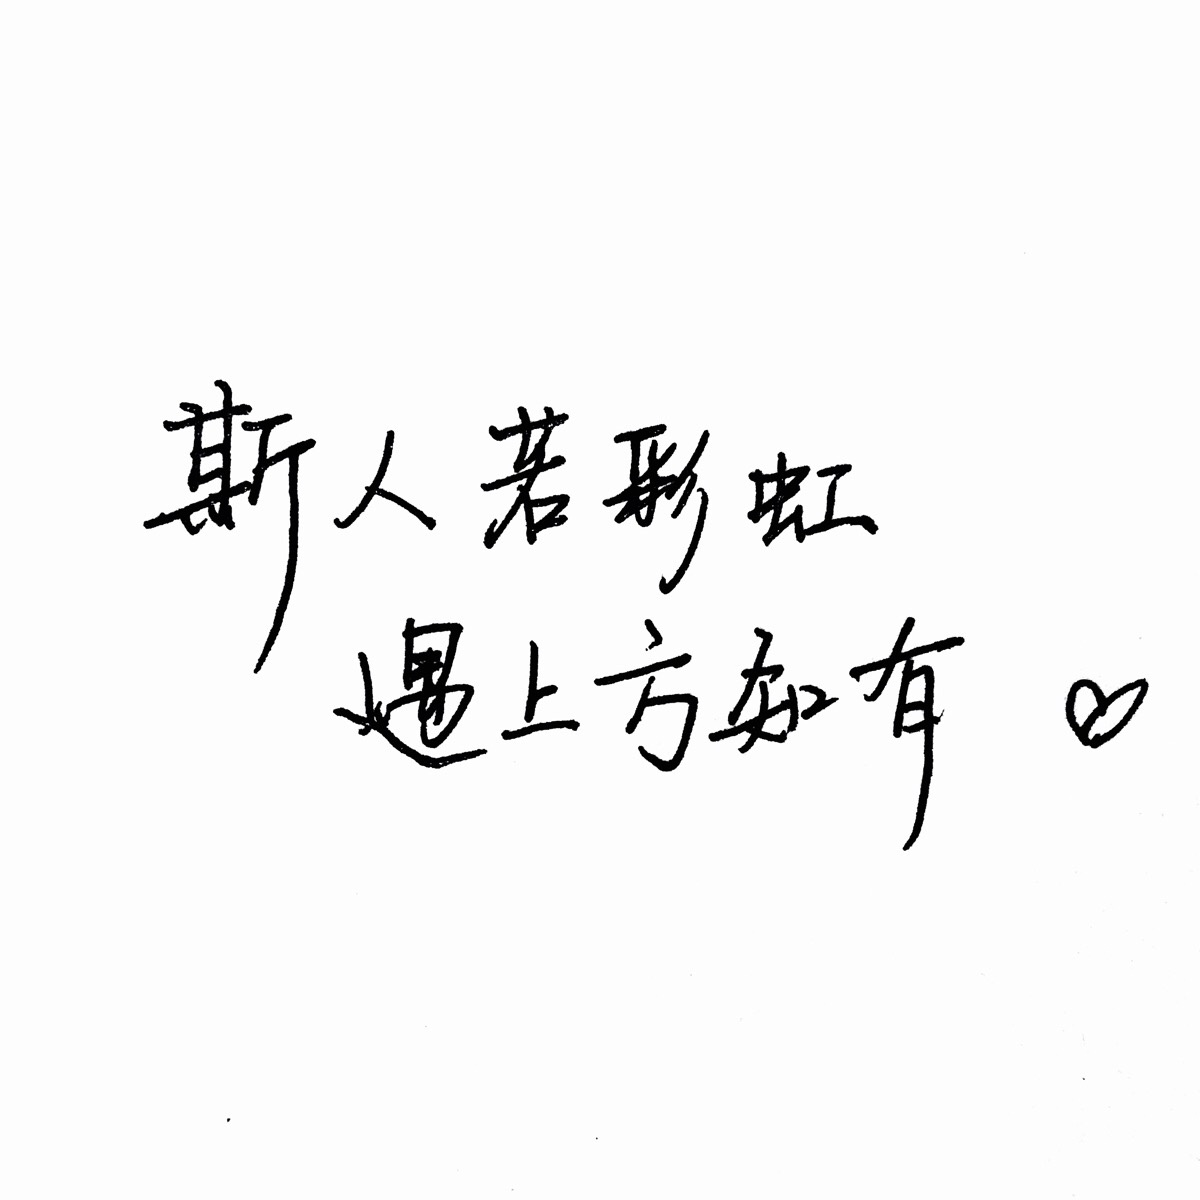 斯人若彩虹
遇上方知有 ♡